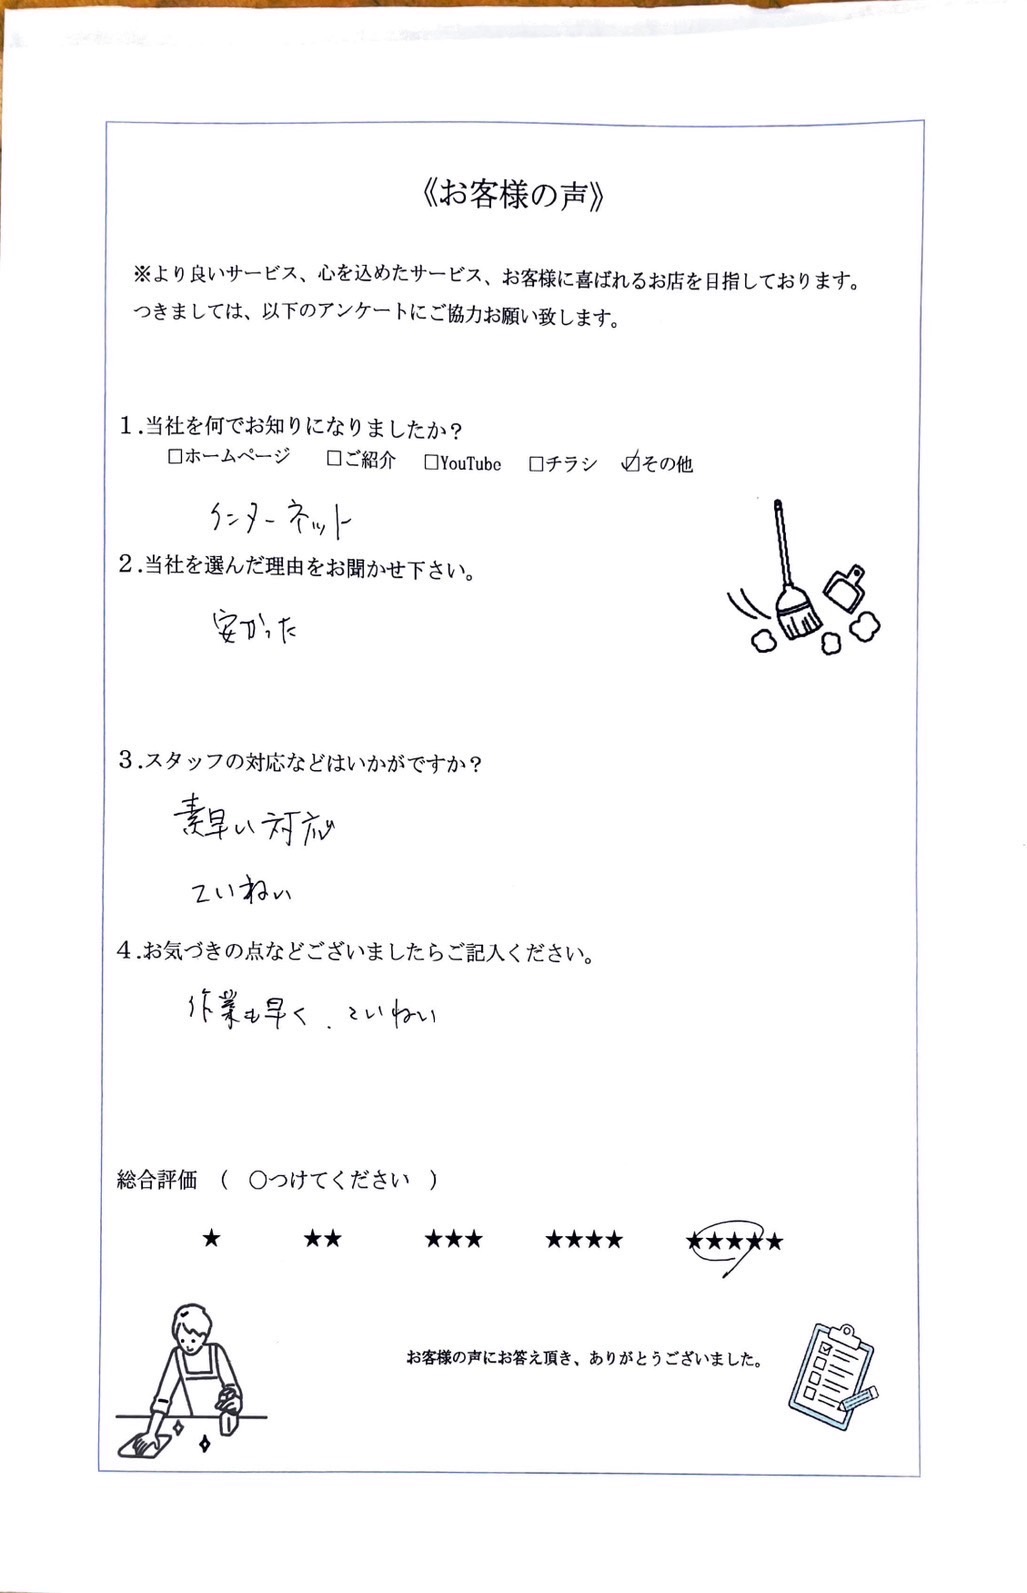 《お客様の声》
※より良いサービス、心を込めたサービス、お客様に喜ばれるお店を目指しております。
つきましては、以下のアンケートにご協力お願い致します。
１.当社を何でお知りになりましたか？
□ホームページ □ご紹介 □YouTube □チラシ ☑その他
インターネット
２.当社を選んだ理由をお聞かせ下さい。
安かった
３.スタッフの対応などはいかがですか？
素早い対応
ていねい
４.お気づきの点などございましたらご記入ください。
作業も早く、ていねい
総合評価 （ ○つけてください ）
★ ★★ ★★★ ★★★★ ★★★★★
お客様の声にお答え頂き、ありがとうございました。